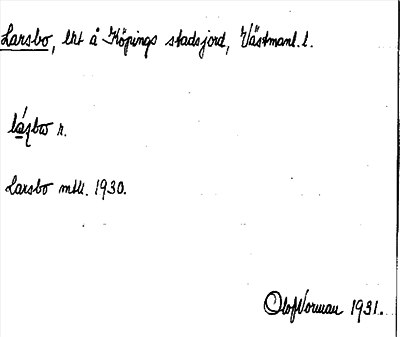 Larsbo, lht å Köpings stadsjord, Västmanl. l.
r.
Larsbo mtll. 1930.
Olof Norman 1931.